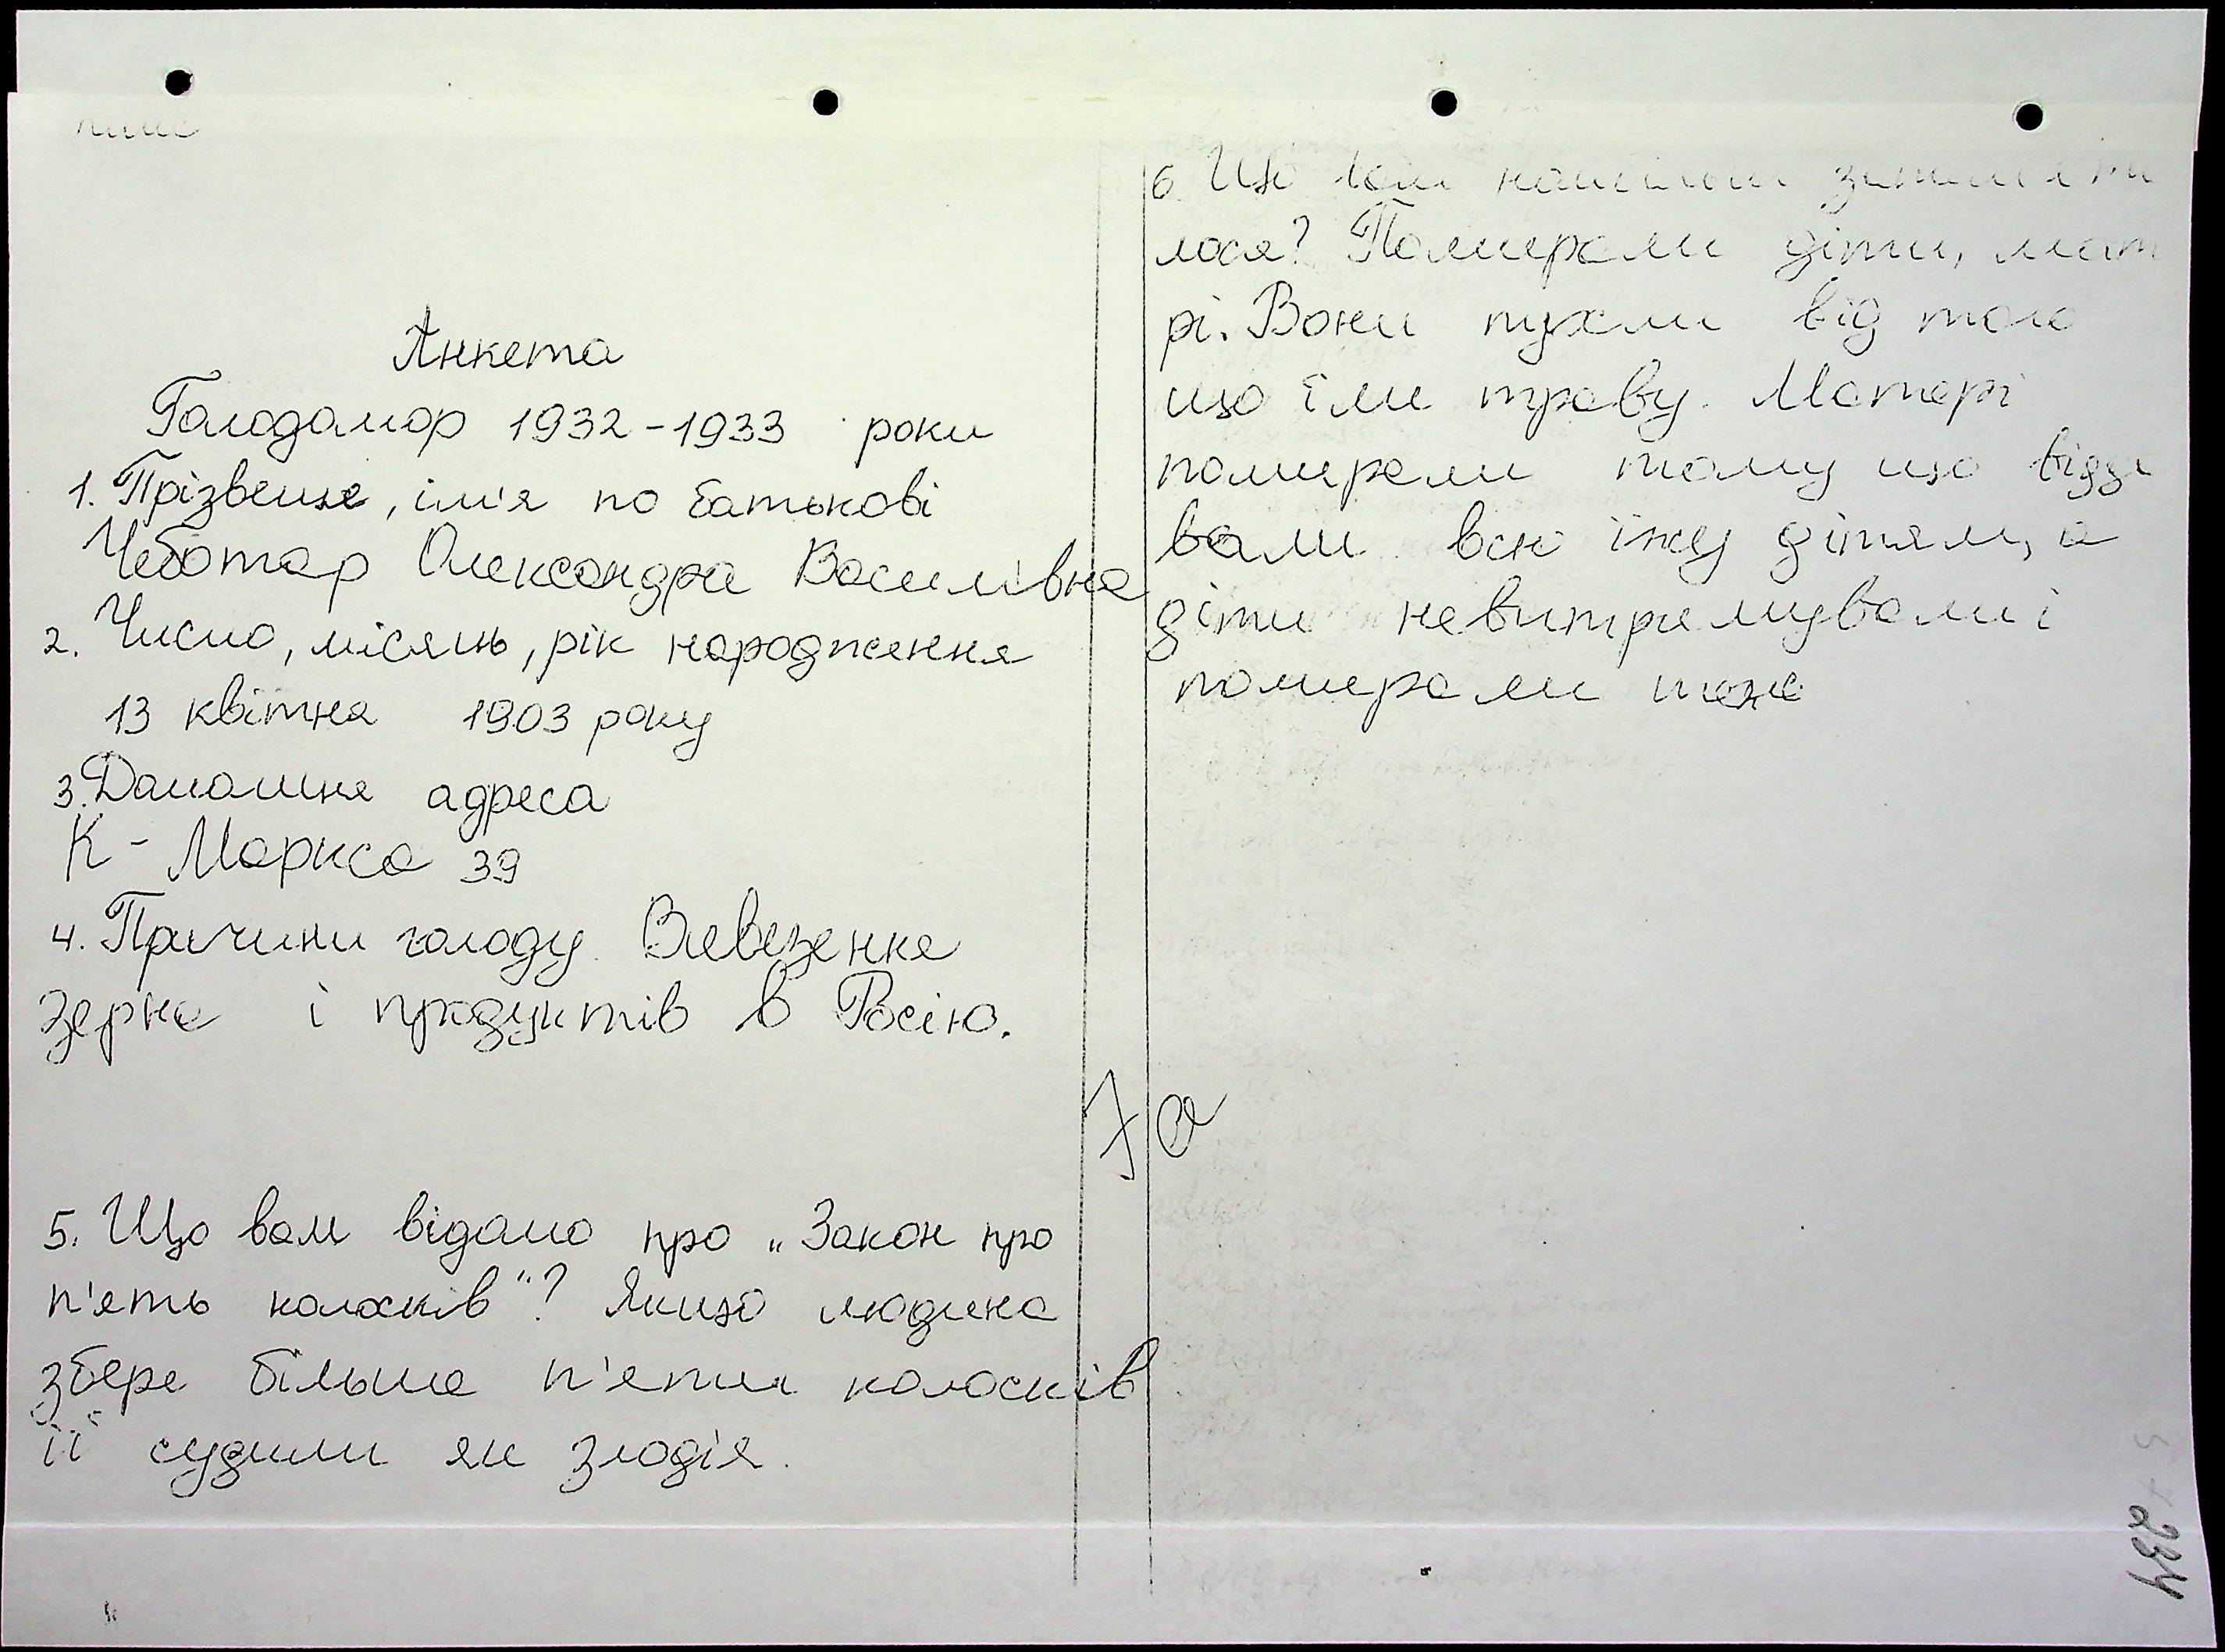 Анкета
Голодомор 1932-1933 роки
1. Прізвеще, ім'я по батькові
Чеботар Олександра Василівна
2. Число, місяць, рік народження
13 квітня 1903 року
3. Домошня адреса
К - Маркса 39
4. Причини голоду. Вевезення
зерна і продуктів в Росію.
5. Що вам відомо про „Закон про
п'ять колосків"? Якщо людина
збере більше п'яти колосків
її судили як злодія.
7а
6. Що вам найбільш
лося? Помирали діти, мат
рі. Вони пухли від того
що їли траву. Матері
помирали тому що відда
вали всю їжу дітям, а
діти невитримували і
помирали теж
234